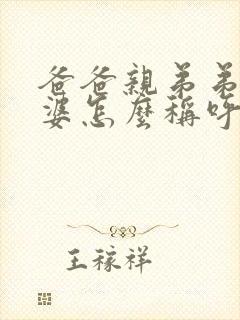 爸爸親弟弟
婆怎麼稱呼
王稼祥